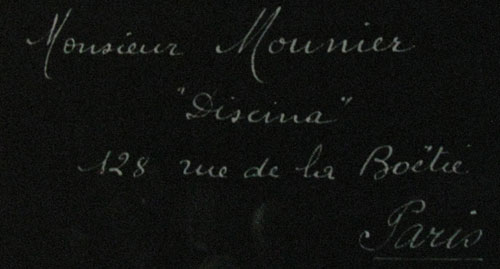 Monsieur Mounier
"Discina"
128 rue de la Boëtie
Paris